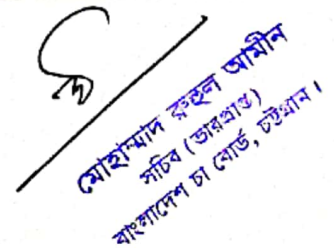 মোহাম্মাদ রুহুল আমীন
সচিব (ভারপ্রাপ্ত)
বাংলাদেশ চা বোর্ড, চট্টগ্রাম।